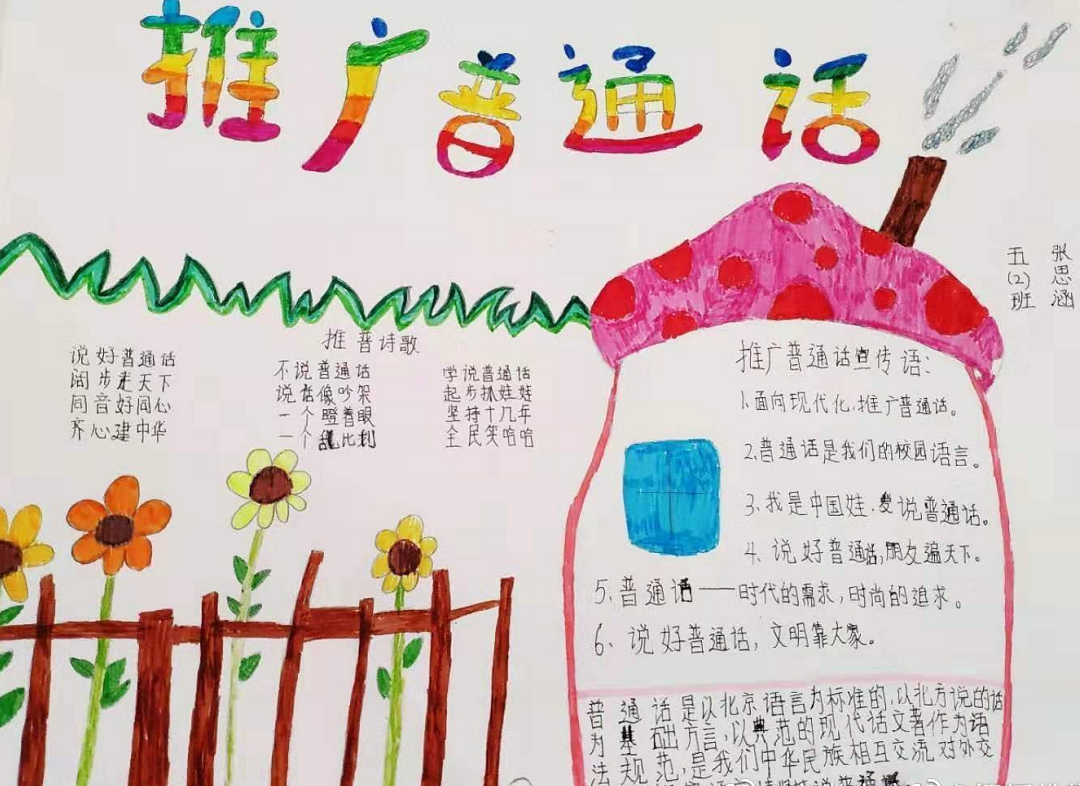 推广普通话
五(2)班
张思涵
推普诗歌
说好普通话
阔步走天下
同音好同心
齐心建中华
不说普通话
说话像吵架
一个瞪着眼
一个乱比划
学说普通话
起步抓娃娃
坚持十几年
全民笑哈哈
推广普通话宣传语:
1.面向现代化,推广普通话。
2.普通话是我们的校园语言。
3.我是中国娃.爱说普通话。
4.说好普通话,朋友遍天下。
5.普通话——时代的需求,时尚的追求。
6、说好普通话,文明靠大家。
普通话是以北京语言为标准的,以北方说的话
为基础方言,以典范的现代话文著作为语
法规范,是我们中华民族相互交流对外交
说普通